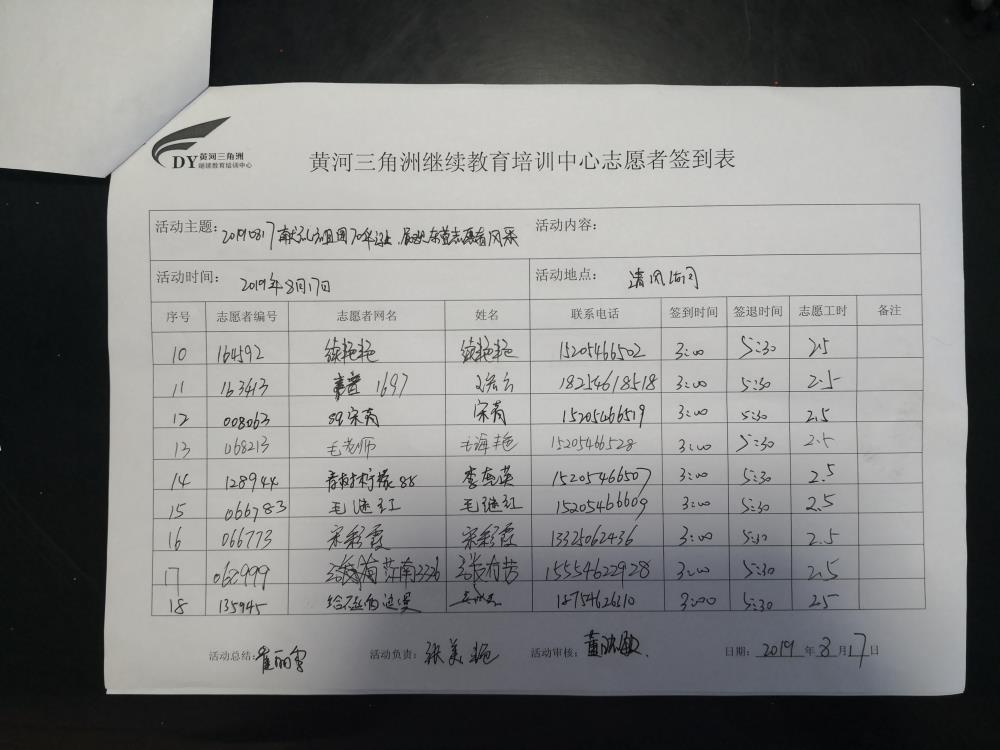 DY 黄河三角洲
继续教育培训中心
黄河三角洲继续教育培训中心志愿者签到表
活动主题: 20190817 祖国70华诞 志愿者风采 活动内容:
活动时间: 2019年8月17日 活动地点: 清风湖
序号 志愿者编号 志愿者网名 姓名 联系电话 签到时间 签退时间 志愿工时 备注
10 164592 续艳艳 续艳艳 15205466502 3:00 5:30 2.5
11 163413 1697 18254618518 3:00 5:30 2.5
12 008063 宋芮 宋芮 15205466519 3:00 5:30 2.5
13 068213 毛老师 毛海艳 15205466528 3:00 5:30 2.5
14 128944 青柠檬88 李 英 15205466507 3:00 5:30 2.5
15 066783 毛继红 毛继红 15205466609 3:00 5:30 2.5
16 066773 宋彩霞 宋彩霞 13325062436 3:00 5:30 2.5
17 062999 江南3326 15554622928 3:00 5:30 2.5
18 135945 18754626310 3:00 5:30 2.5
活动总结: 崔丽 活动负责: 张美艳 活动审核: 董 日期: 2019 年 8 月 17 日